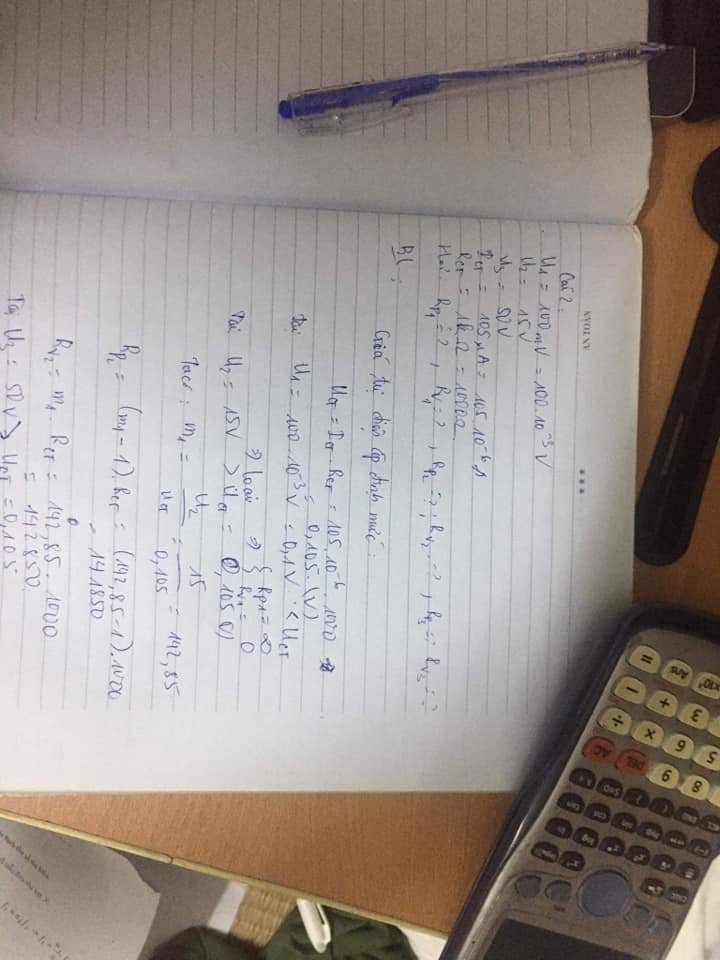 Câu 2:
U1 = 100mV = 100.10⁻³ V
U2 = 15V
U3 = 50V
Ict = 105 μA = 105.10⁻⁶ A
Rct = 1k Ω = 1000Ω
Hỏi: Rp1 = ?, Rv1 = ?, Rp2 = ?, Rv2 = ?, Rp3 = ?, Rv3 = ?
BL:
Giá trị điện áp định mức:
Uct = Ict . Rct = 105.10⁻⁶ . 1000
= 0,105 (V)
Tại U1 = 100.10⁻³ V = 0,1V < Uct
⇒ loại ⇒ { Rp1 = ∞
Rv1 = 0
Tại U2 = 15V > Uct = 0,105 V)
Tacó: m1 = U2/Uct = 15/0,105 = 142,85
Rp2 = (m1 - 1).Rct = (142,85 - 1).1000
= 141850
Rv2 = m1 . Rct = 142,85 . 1000
= 142850
Tại U3 = 50V > Uct = 0,105
= Ans ×10ˣ
- + 3
÷ × 6 5
AC DEL 9 8